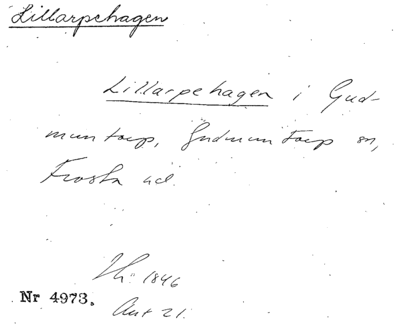 Lillarpehagen
Lillarpehagen i Gud-
muntorp, Gudmuntorp sn,
Frosta hd.
1846
Nr 4973.
Aut 21.